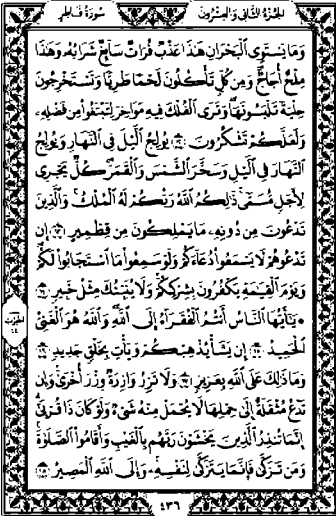 الجزء الثاني والعشرون
سورة فاطر
وَمَا يَسْتَوِي الْبَحْرَانِ هَٰذَا عَذْبٌ فُرَاتٌ سَائِغٌ شَرَابُهُ وَهَٰذَا
مِلْحٌ أُجَاجٌ وَمِن كُلٍّ تَأْكُلُونَ لَحْمًا طَرِيًّا وَتَسْتَخْرِجُونَ
حِلْيَةً تَلْبَسُونَهَا وَتَرَى الْفُلْكَ فِيهِ مَوَاخِرَ لِتَبْتَغُوا مِن فَضْلِهِ
وَلَعَلَّكُمْ تَشْكُرُونَ ١٢ يُولِجُ اللَّيْلَ فِي النَّهَارِ وَيُولِجُ
النَّهَارَ فِي اللَّيْلِ وَسَخَّرَ الشَّمْسَ وَالْقَمَرَ كُلٌّ يَجْرِي
لِأَجَلٍ مُّسَمًّى ذَٰلِكُمُ اللَّهُ رَبُّكُمْ لَهُ الْمُلْكُ وَالَّذِينَ
تَدْعُونَ مِن دُونِهِ مَا يَمْلِكُونَ مِن قِطْمِيرٍ ١٣ إِن
تَدْعُوهُمْ لَا يَسْمَعُوا دُعَاءَكُمْ وَلَوْ سَمِعُوا مَا اسْتَجَابُوا لَكُمْ
وَيَوْمَ الْقِيَامَةِ يَكْفُرُونَ بِشِرْكِكُمْ وَلَا يُنَبِّئُكَ مِثْلُ خَبِيرٍ ١٤
يَا أَيُّهَا النَّاسُ أَنتُمُ الْفُقَرَاءُ إِلَى اللَّهِ وَاللَّهُ هُوَ الْغَنِيُّ
الْحَمِيدُ ١٥ إِن يَشَأْ يُذْهِبْكُمْ وَيَأْتِ بِخَلْقٍ جَدِيدٍ ١٦
وَمَا ذَٰلِكَ عَلَى اللَّهِ بِعَزِيزٍ ١٧ وَلَا تَزِرُ وَازِرَةٌ وِزْرَ أُخْرَىٰ وَإِن
تَدْعُ مُثْقَلَةٌ إِلَىٰ حِمْلِهَا لَا يُحْمَلْ مِنْهُ شَيْءٌ وَلَوْ كَانَ ذَا قُرْبَىٰ
إِنَّمَا تُنذِرُ الَّذِينَ يَخْشَوْنَ رَبَّهُم بِالْغَيْبِ وَأَقَامُوا الصَّلَاةَ
وَمَن تَزَكَّىٰ فَإِنَّمَا يَتَزَكَّىٰ لِنَفْسِهِ وَإِلَى اللَّهِ الْمَصِيرُ ١٨
٤٣٦